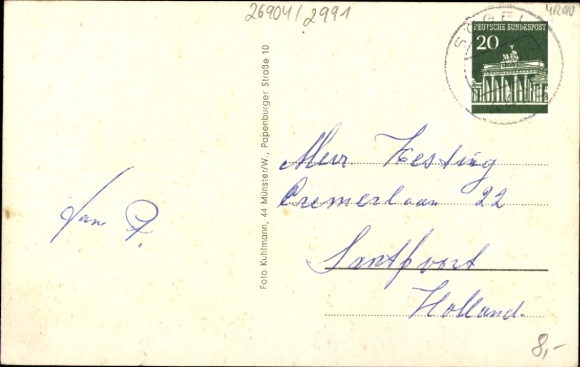 26904/2991
SÖGEL
DEUTSCHE BUNDESPOST
20
Foto Kuhlmann, 44 Münster/W., Papenburger Straße 10
Mevr Kesting
Cremerlaan 22
Santpoort
Holland.
8,-